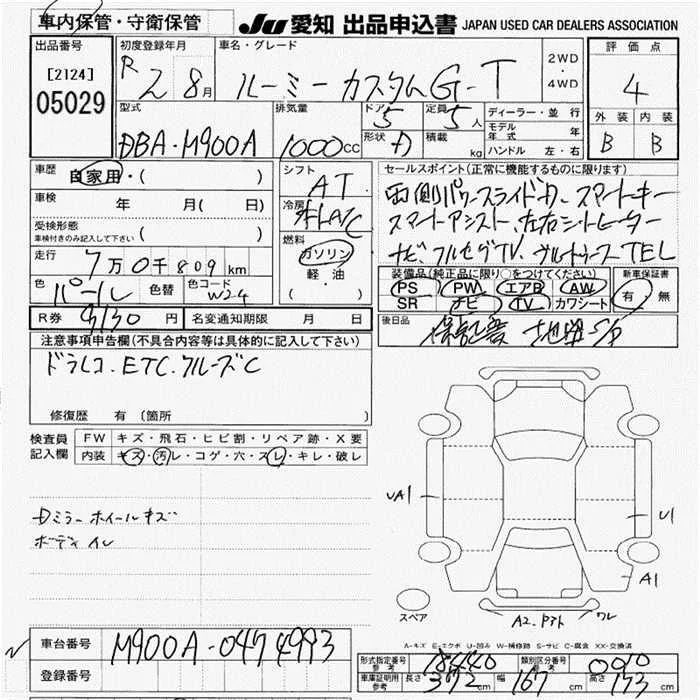 車内保管・守衛保管
JU 愛知 出品申込書 JAPAN USED CAR DEALERS ASSOCIATION
出品番号
[2124]
05029
初度登録年月
R 2 8月
車名・グレード
ルーミー カスタムG-T
2WD
・
4WD
評価点
4
外装 内装
B B
型式
DBA・M900A
排気量
1000cc
ドア
5
定員
5人
形状
D
積載
kg
ディーラー・並行
モデル年式 年
ハンドル 左・右
車歴
自家用・( )
車検 年 月( 日)
受検形態
車検付きのみ記入して下さい ( )
走行 7万0千809km
色 パール 色替 色コード W24
シフト
AT
冷房
オートA/C
燃料
ガソリン
軽・油
( )
セールスポイント(正常に機能するものに限ります)
両側パワースライドD、スマートキー
スマートアシスト、左右シートヒーター
ナビ、フルセグTV、ブルートゥースTEL
装備品(純正品に限り○をつけてください)
PS PW エアB AW
SR ナビ TV カワシート
新車保証書
有・無
R券 9130円 名変通知期限 月 日
後日品
保証書
注意事項申告欄(不具合内容等は具体的に記入して下さい)
ドラレコ.ETC.クルーズC
修復歴 有(箇所 )
検査員記入欄
FW キズ・飛石・ヒビ割・リペア跡・X要
内装 キズ・汚レ・コゲ・穴・スレ・キレ・破レ
Dミラー ホイールキズ
ボディイレ
UA1
U1
A1
スペア
A2
ワレ
車台番号 M900A-0474993
登録番号
A-キズ E-エクボ U-凹み W-補修跡 S-サビ C-腐食 XX-交換済
形式指定番号参考 18440 類別区分番号参考 0090
車庫証明用参考 長さ 372cm 幅 167cm 高さ 173cm